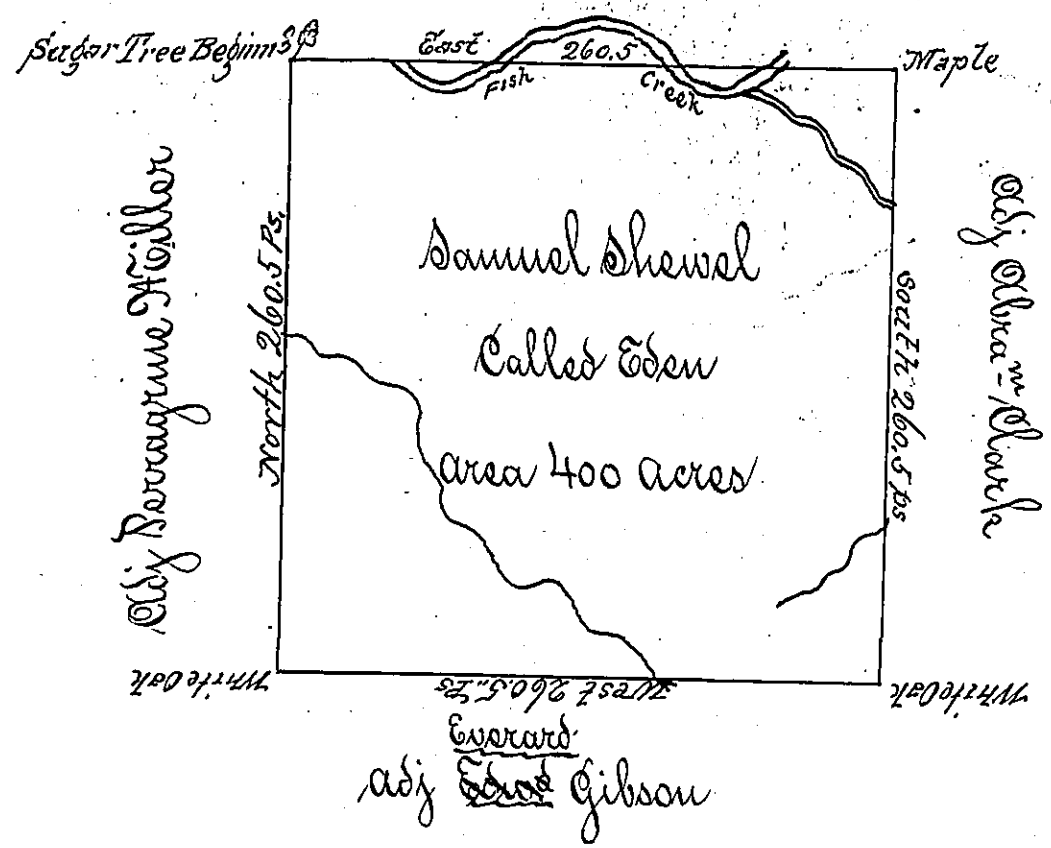 Sugar Tree Begins
East 260.5
Fish Creek
Maple
Adj Perragrine Miller
North 260.5 Ps.
Samuel Shewel
Called Eden
area 400 acres
South 260.5 ps
Adj Abram Clark
White Oak
West 260.5 Ps
White Oak
Everard
adj Edwd Gibson